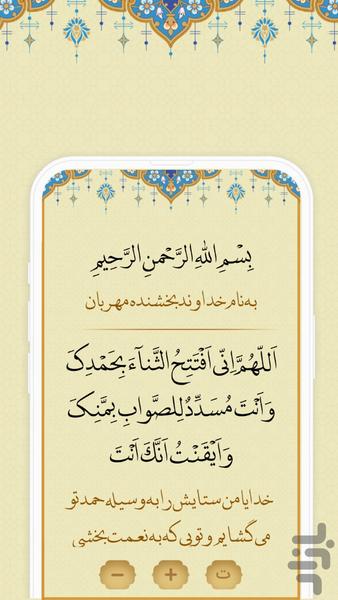 بِسْمِ اللهِ الرَّحْمنِ الرَّحِیمِ
به نام خداوند بخشنده مهربان
اَللّهُمَّ اِنّی اَفْتَتِحُ الثَّناءَ بِحَمْدِکَ
وَ اَنْتَ مُسَدِّدٌ لِلصَّوابِ بِمَنِّکَ
وَ اَیْقَنْتُ اَنَّکَ اَنْتَ
خدایا من ستایش را به وسیله حمد تو
می گشایم و تویی که به نعمت بخشی
− + ت
بازار